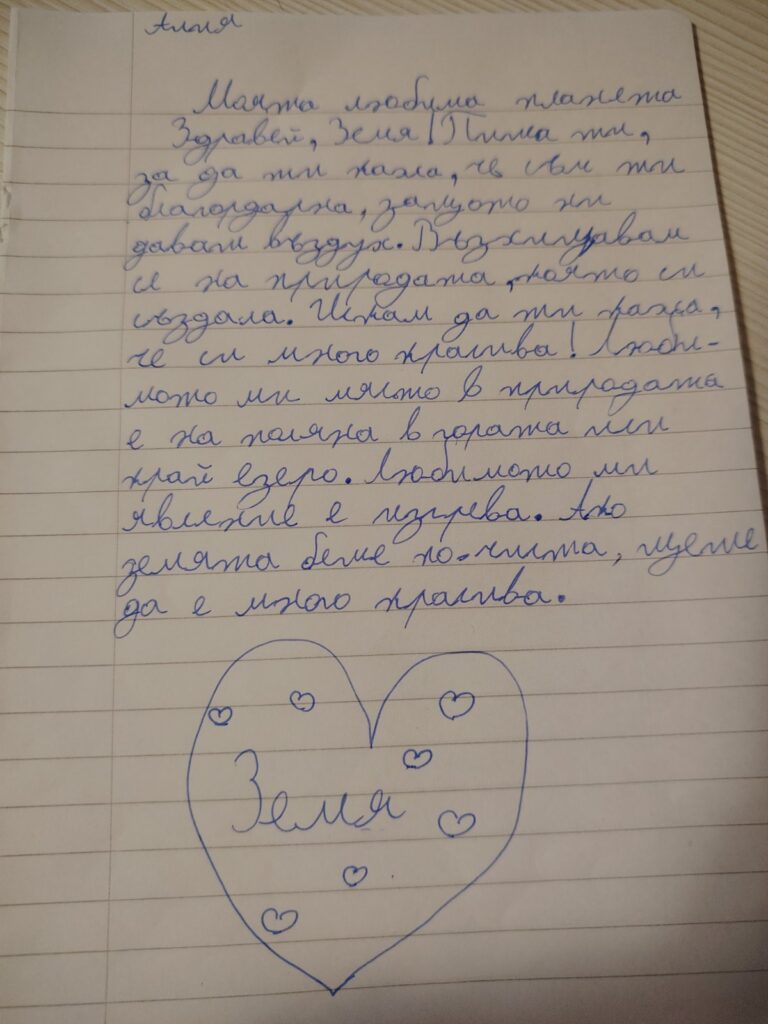 Алия
Моята любима планета
Здравей, Земя! Пиша ти,
за да ти кажа, че съм ти
благордарна, защото ни
даваш въздух. Възхищавам
се на природата, която си
създала. Искам да ти кажа,
че си много красива! Люби-
мото ми място в природата
е на поляна в гората или
край езеро. Любимото ми
явление е изгрева. Ако
земята беше по-чиста, щеше
да е много красива.
Земя